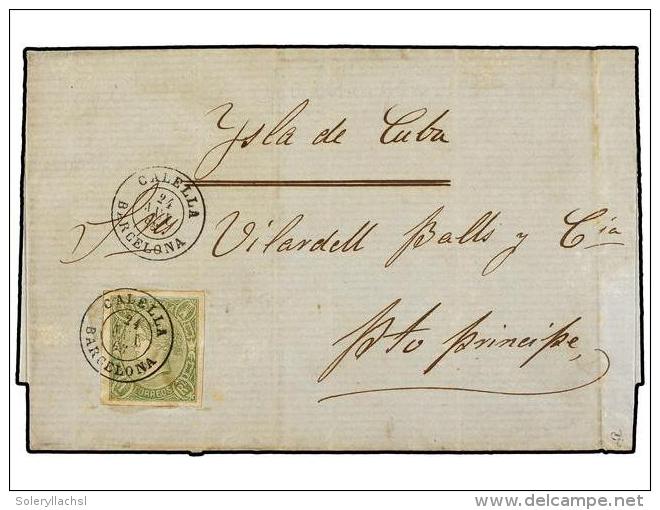 Ysla de Cuba
CALELLA
24
BARCELONA
Vilardell Balls y Cia
CALELLA
24
BARCELONA
CORREOS
Pto Principe
Soleryllachsl
delcampe.net